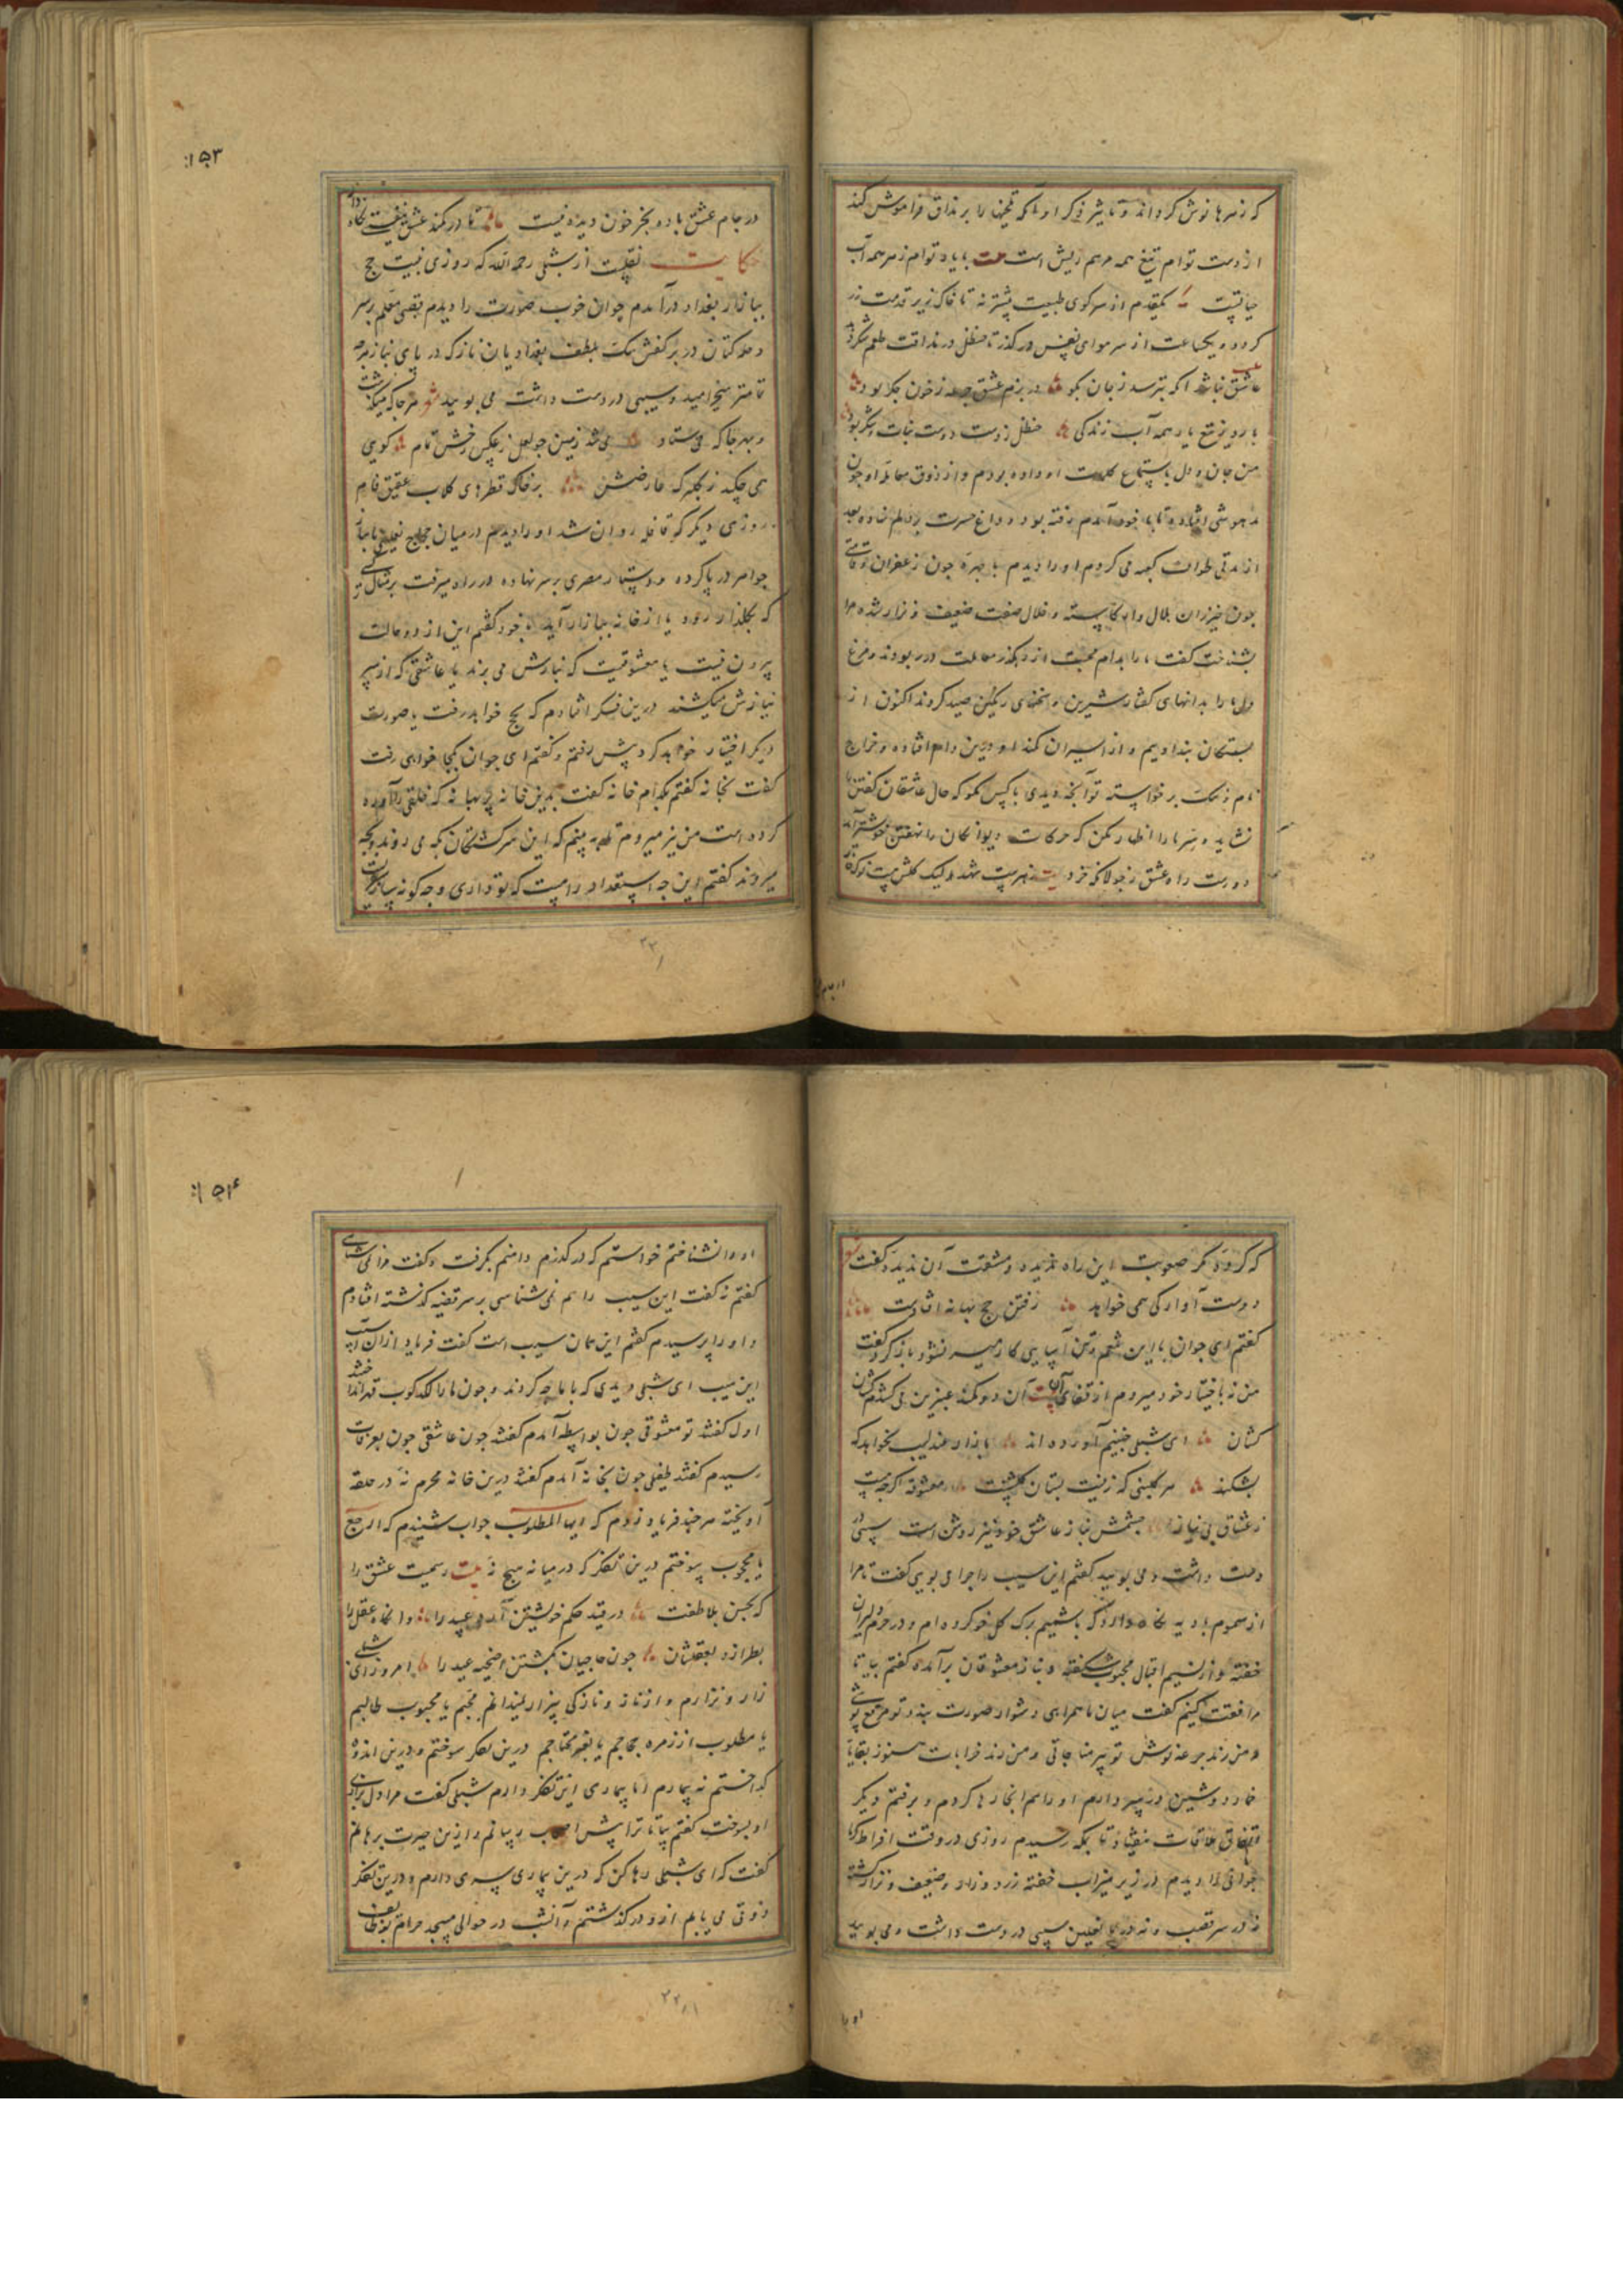 که زهرها نوش کرده‌اند و تاثیر ذکر او تا که تلخیها را بر مذاق فراموش کند
از دست توام تیغ همه مرهم ریش است بیت با یاد توام زهر همه آب
حیاتست یکقدم از سر کوی طبیعت پیشتر نه تا خاک زیر قدمت زر
کردد و یکساعت از سر هوای نفس در کذر تا حنظل در مذاقت طعم شکر دهد
عاشق نباشد آنکه بترسد ز جان بکو در بزم عشق جرعه ز خون جکر بود
با روی تلخ یار همه آب زندکی حنظل ز دست دوست نبات و شکر بود
من جان و دل باستماع کلمات او داده بودم و از ذوق مقاله او چون
مدهوشی افتاده تا با خود آمدم رفته بود و داغ حسرت بر دلم نهاده بعد
از مدتی طواف کعبه می کردم او را دیدم با چهره چون زعفران و قامتی
چون خیزران هلال وار کاسته و خلال صفت ضعیف و نزار شده مرا
بشناخت کفت ما را بدام محبت از رهکذر معاملت در ربودند و مرغ
دل ما را بدانهای کفتار شیرین و سخنهای رنکین صید کردند اکنون از
بستکان بنداویم و از اسیران کمند او درین دام افتاده و خراج
نام و ننک برخواسته تو آنچه دیدی با کس مکو که حال عاشقان کفتن را
نشاید و سر ما را اظهار مکن که حرکات دیوانکان را نهفتن خوشتر آید
دورست راه عشق ز غولانکه خرد بیت زهرست شهد لیک کلش
در جام عشق باده بجز خون دیده نیست تا در کمند عشق نیفتد نکاه دار
حکایت نقلست از شبلی رحمه الله که روزی نیت حج
ببازار بغداد درآمدم جوان خوب صورت را دیدم قصبی معلم بر سر
و صد کتان در بر کفش تنک بلطف بغدادیان نازک در پای نیازمند
تا متر میخرامید و سیبی در دست داشت می بوئید شعر هرجا که میکذشت
و بهر جا که می ستاد می شد زمین چو لعل ز عکس رخش تمام کویی
می چکد ز بکه که عارضش بر خاک قطرهای کلاب عقیق فام
روزی دیکر که قافله روان شد او را دیدم در میان حجاج نعلین بانواع
جواهر در پا کرده و دستار مصری بر سر نهاده در راه میرفت بر مثال کسی
که بکلزار رود یا از خانه ببازار آید با خود کفتم این از دو حالت
بیرون نیست یا معشوقیست که نیازش می برند یا عاشقی که از سر
نیازش میکشند درین فکر افتادم که بحج خواهد رفت یا صورت
دیکر اختیار خواهد کرد پیش رفتم و کفتم ای جوان بکجا خواهی رفت
کفت بخانه کفتم بکدام خانه کفت بدین خانه پر بهانه که خلقی را آواره
کرده است من نیز میروم تا به بینم که این سرکشتکان بکه می روند و بچه
میروند کفتم این چه استعداد راهست که تو داری و چه کونه
که کردی مکر صعوبت این راه ندیدی و مشقت آن ندیدی کفت شعر
دوست آوارکی همی خواهد رفتن حج بهانه افتادست
کفتم ای جوان با این تنعم و تن آسایی کار میسر نشود باز کرد کفت
من نه باختیار خود میروم از قفای بیت آن دو کمند عنبرین می کشدم کشان
کشان ای شبلی چنینم آورده اند با زاد عندلیب نخواهد که
بشکند هر کلبنی که زینت بستان کلشنست معشوقه اکرچه هست
ز عشاق بی نیاز چشمش نیاز عاشق خود نیز روشن است سیبی در
دست داشت و می بوئید کفتم این سیب را چرا می بویی کفت تا مرا
از سموم بادیه نکاه دارد که با شمیم برک کل خو کرده ام و در حرم دلبران
خفته و از نسیم اقبال محبوب شکفته و بناز معشوقان برآمده کفتم بیا تا
مرافقت کنیم کفت میان ما همراهی دشوار صورت بندد تو مرقع پوشی
و من رند جرعه نوش تو پیر مناجاتی و من رند خرابات هنوز بقایا
خمار دوشین در سر دارم او را هم آنجا رها کردم و برفتم دیکر
اتفاق ملاقات نیفتاد تا بمکه رسیدم روزی در وقت افراط کرما
جوانی را دیدم در زیر میزاب خفته زرد و زار و ضعیف و نزار کشته
نه در سر قصب و نه در پا نعلین سیبی در دست داشت و می بوئید
او را
او را نشناختم خواستم که در کذرم دامنم بکرفت و کفت مرا نمی شناسی
کفتم نه کفت این سیب را هم نمی شناسی بر سر قضیه کذشته افتادم
و او را پرسیدم کفتم این همان سیب است کفت فریاد از آن آسیب
این سیب ای شبلی دیدی که با ما چه کردند و چون ما را لکدکوب قهر
اول کفتند تو معشوقی چون بواسطه آمدم کفتند چون عاشقی چون بعرفات
رسیدم کفتند طفیلی چون بخانه آمدم کفتند درین خانه محرم نه در حلقه
آویخته هرچند فریاد زدم که ایها المطلوب جواب شنیدم که ارجع
یا محجوب سوختم درین تفکر که در میانه هیچ نه بیت رسمیست عشق را
که بحسن ملاطفت در قید حکم خویشتن آرد عبید را وانکاه عقل را
بطرازد بعقلشان چون حاجیان بکشتن اضحیه عید را امروز ای شبلی
زار و نزارم و از ناز و نازکی بیزار نمیدانم محبم یا محبوب طالبم
یا مطلوب از زمره حجاجم یا بغیر محتاجم درین تفکر سوختم و درین اندوه
کداختم نه بیمارم اما بیماری این تفکر دارم شبلی کفت مرا دل بزاری
او بسوخت کفتم بیا تا ترا پیش اصحاب برسانم و ازین حیرت برهانم
کفت که ای شبلی رها کن که درین بیماری سری دارم و درین تفکر
ذوقی می یابم ازو در کذشتم و آن شب در حوالی مسجد حرام بودم